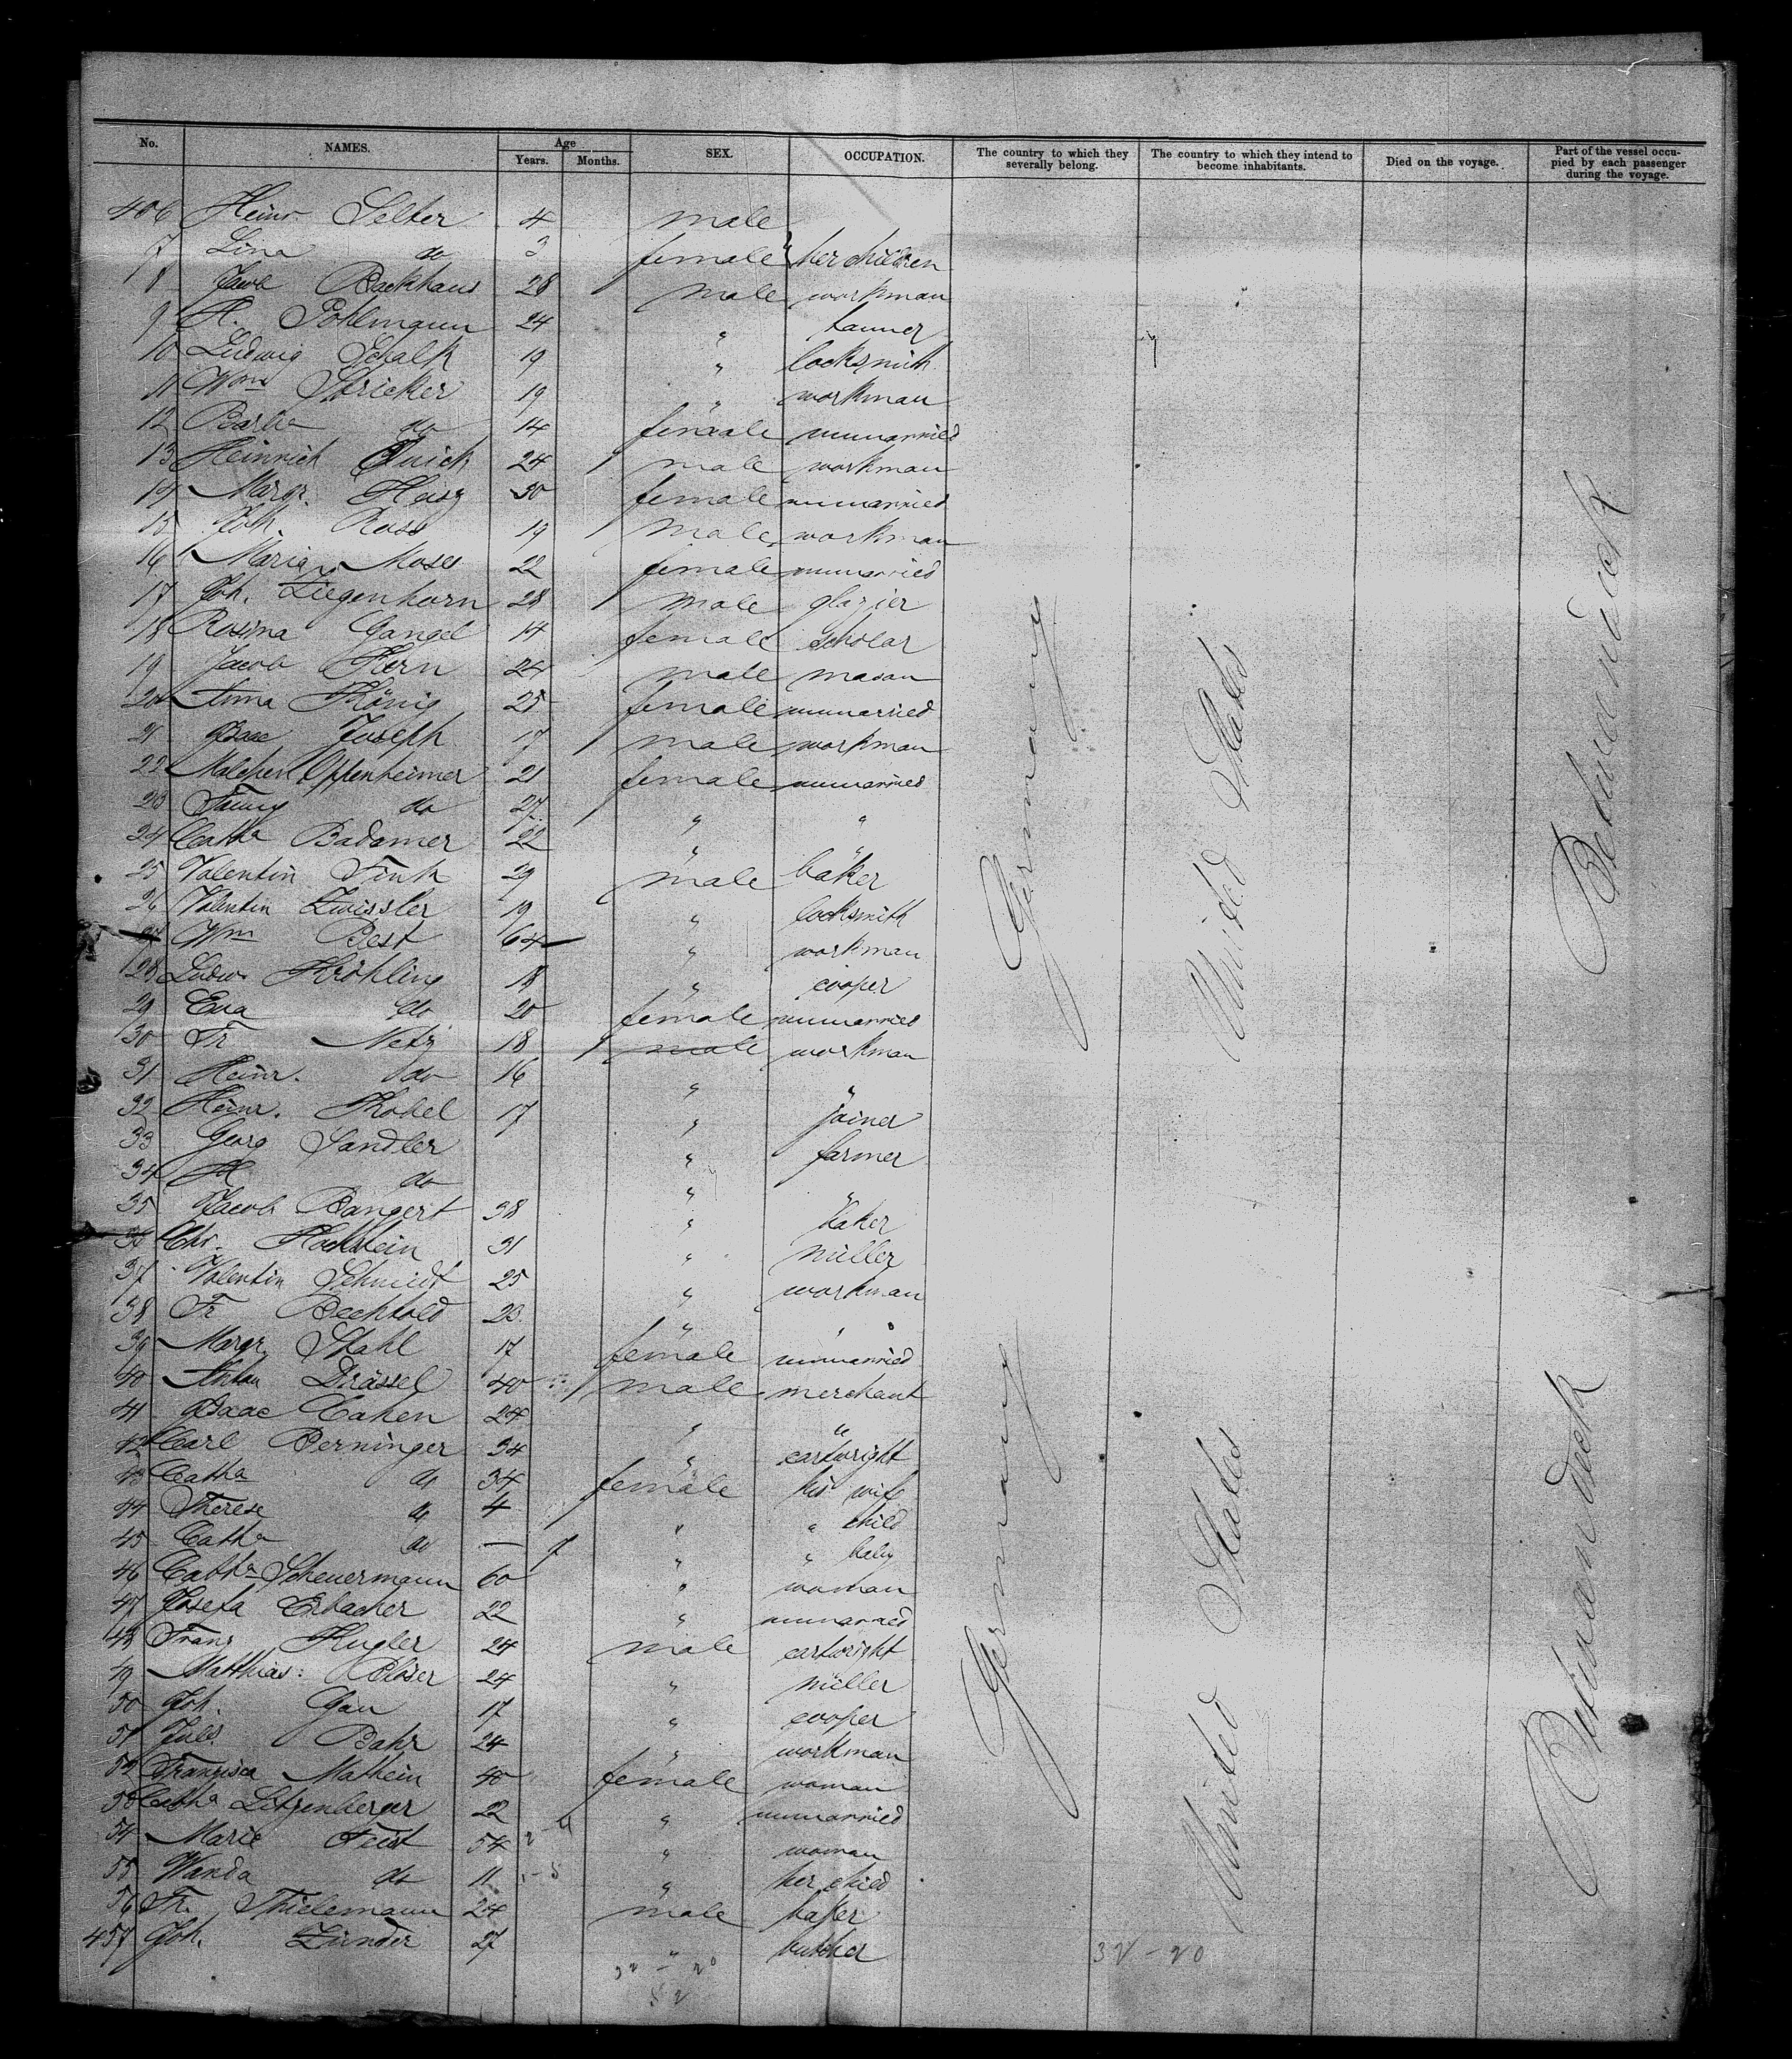 No. NAMES. Age Years. Months. SEX. OCCUPATION. The country to which they severally belong. The country to which they intend to become inhabitants. Died on the voyage. Part of the vessel occupied by each passenger during the voyage.
406 Heinr Selter 4 male
7 Lina do 3 female her children
8 Jacob Backhaus 28 male workman
9 H. Pohlmann 24 " tanner
10 Ludwig Schalk 19 " locksmith
11 Wm Stricker 19 " workman
12 Barba do 14 female unmarried
13 Heinrich Quick 24 male workman
14 Margr. 30 female unmarried
15 Joh. Ross 19 male workman
16 Maria Moses 22 female unmarried
17 Joh. Ziegenhorn 28 male glazier
18 Rosina Gangel 14 female scholar
19 Jacob Horn 24 male mason
20 Anna König 25 female unmarried
21 Isaac Joseph 17 male workman
22 Malchen Oppenheimer 21 female unmarried
23 Fanny do 27 " "
24 Catha Badamer 22 " "
25 Valentin Fink 29 male baker
26 Valentin Zwissler 19 " locksmith
27 Wm Best 64 " workman
28 Ludw. Kröhling 18 " cooper
29 Eva do 20 female unmarried
30 Fr Netz 18 male workman
31 Heinr. do 16 " "
32 Heinr. Kobel 17 " joiner
33 Georg Sandler " farmer
34 H do " "
35 Jacob Bangert 38 " baker
36 Chr. Hockstein 31 " miller
37 Valentin Schmidt 25 " workman
38 Fr Bechtold 23 " "
39 Margr. Stahl 17 female unmarried
40 Anton Drässel 40 male merchant
41 Isaac Cahen 24 " "
42 Carl Berninger 34 " cartwright
43 Catha do 34 female his wife
44 Therese do 4 " " child
45 Catha do — 7 " " baby
46 Catha Scheuermann 60 " woman
47 Josefa Erbacher 22 " unmarried
48 Franz Kugler 24 male cartwright
49 Matthias: Bloser 24 " miller
50 Joh. Gau 17 " cooper
51 Juls. Bahr 24 " workman
52 Franzisca Mathein 40 female woman
53 Catha Litzenberger 22 " unmarried
54 Marie Feist 54 " woman
55 Wanda do 11 " her child
56 Fr. Thielemann 24 male baker
457 Joh. Zünder 27 " butcher
Germany
United States
Between deck
Germany
United States
Between deck
32 - 20
52
32 - 20